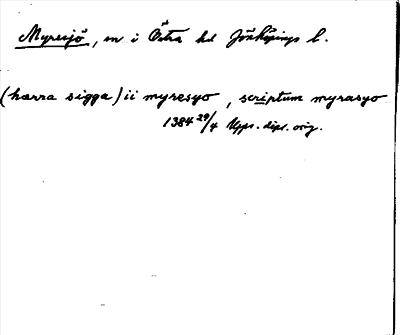 Myresjö, sn i Östra hd Jönköpings l.
(hærra sigga) ii myresyo, scriptum myrasyo
1384 29/4 Upps. dipl. orig.